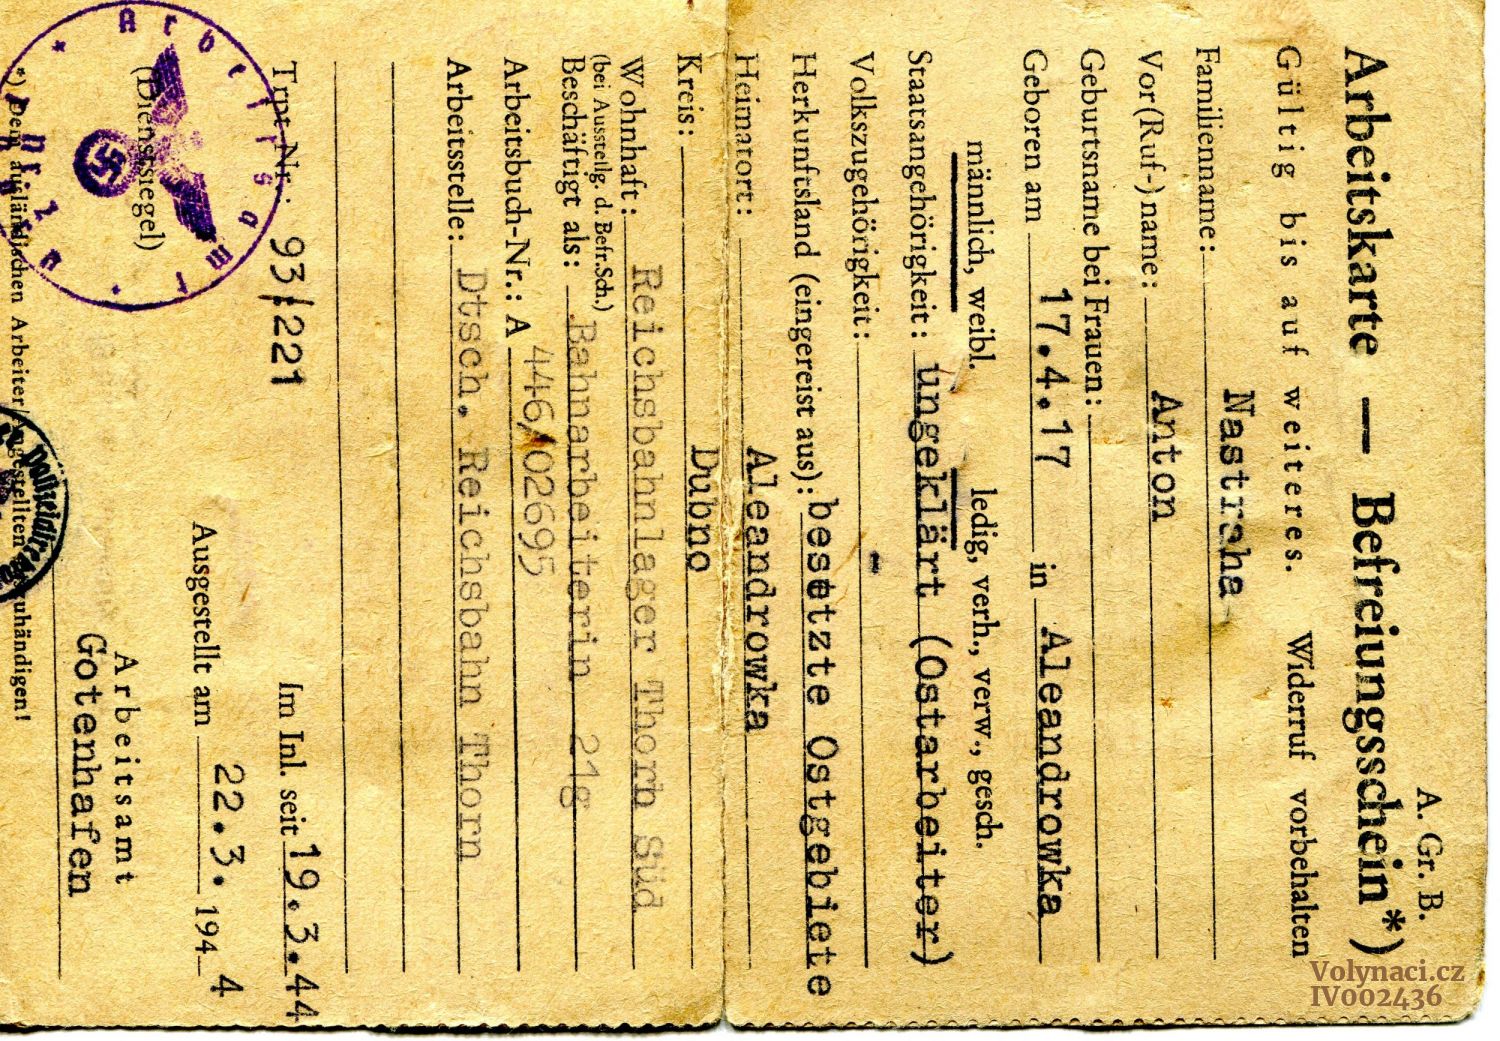 A. Gr. B.
Arbeitskarte — Befreiungsschein*)
Gültig bis auf weiteres. Widerruf vorbehalten
Familienname: Nastraha
Vor(Ruf-)name: Anton
Geburtsname bei Frauen:
Geboren am 17.4.17 in Aleandrowka
männlich, weibl. ledig, verh., verw., gesch.
Staatsangehörigkeit: ungeklärt (Ostarbeiter)
Volkszugehörigkeit: -
Herkunftsland (eingereist aus): besetzte Ostgebiete
Heimatort: Aleandrowka
Kreis: Dubno
Wohnhaft: Reichsbahnlager Thorn Süd
(bei Ausstellg. d. Befr.Sch.)
Beschäftigt als: Bahnarbeiterin 21g
Arbeitsbuch-Nr.: A 446/02695
Arbeitsstelle: Dtsch. Reichsbahn Thorn
Trpt Nr. 93/221 Im Inl. seit 19.3.44
Ausgestellt am 22.3. 1944
(Dienstsiegel)
Arbeitsamt
Arbeitsamt
Gotenhafen
*) Dem ausländischen Arbeiter/Angestellten auszuhändigen!
Volynaci.cz
IV002436